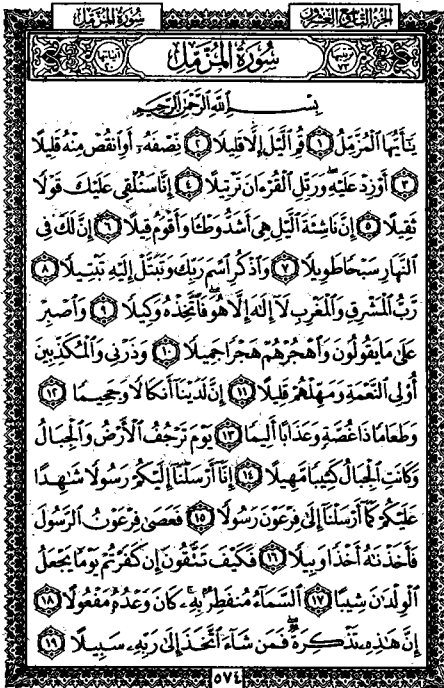 الجزء التاسع والعشرون
سورة المزمل
سُورَةُ المُزَّمِّلِ
بِسْمِ اللَّهِ الرَّحْمَٰنِ الرَّحِيمِ
يَٰٓأَيُّهَا ٱلْمُزَّمِّلُ ١ قُمِ ٱلَّيْلَ إِلَّا قَلِيلًا ٢ نِّصْفَهُۥٓ أَوِ ٱنقُصْ مِنْهُ قَلِيلًا
٣ أَوْ زِدْ عَلَيْهِ وَرَتِّلِ ٱلْقُرْءَانَ تَرْتِيلًا ٤ إِنَّا سَنُلْقِى عَلَيْكَ قَوْلًا
ثَقِيلًا ٥ إِنَّ نَاشِئَةَ ٱلَّيْلِ هِىَ أَشَدُّ وَطْـًٔا وَأَقْوَمُ قِيلًا ٦ إِنَّ لَكَ فِى
ٱلنَّهَارِ سَبْحًا طَوِيلًا ٧ وَٱذْكُرِ ٱسْمَ رَبِّكَ وَتَبَتَّلْ إِلَيْهِ تَبْتِيلًا ٨
رَّبُّ ٱلْمَشْرِقِ وَٱلْمَغْرِبِ لَآ إِلَٰهَ إِلَّا هُوَ فَٱتَّخِذْهُ وَكِيلًا ٩ وَٱصْبِرْ
عَلَىٰ مَا يَقُولُونَ وَٱهْجُرْهُمْ هَجْرًا جَمِيلًا ١٠ وَذَرْنِى وَٱلْمُكَذِّبِينَ
أُو۟لِى ٱلنَّعْمَةِ وَمَهِّلْهُمْ قَلِيلًا ١١ إِنَّ لَدَيْنَآ أَنكَالًا وَجَحِيمًا ١٢
وَطَعَامًا ذَا غُصَّةٍ وَعَذَابًا أَلِيمًا ١٣ يَوْمَ تَرْجُفُ ٱلْأَرْضُ وَٱلْجِبَالُ
وَكَانَتِ ٱلْجِبَالُ كَثِيبًا مَّهِيلًا ١٤ إِنَّآ أَرْسَلْنَآ إِلَيْكُمْ رَسُولًا شَٰهِدًا
عَلَيْكُمْ كَمَآ أَرْسَلْنَآ إِلَىٰ فِرْعَوْنَ رَسُولًا ١٥ فَعَصَىٰ فِرْعَوْنُ ٱلرَّسُولَ
فَأَخَذْنَٰهُ أَخْذًا وَبِيلًا ١٦ فَكَيْفَ تَتَّقُونَ إِن كَفَرْتُمْ يَوْمًا يَجْعَلُ
ٱلْوِلْدَٰنَ شِيبًا ١٧ ٱلسَّمَآءُ مُنفَطِرٌۢ بِهِۦ كَانَ وَعْدُهُۥ مَفْعُولًا ١٨
إِنَّ هَٰذِهِۦ تَذْكِرَةٌ فَمَن شَآءَ ٱتَّخَذَ إِلَىٰ رَبِّهِۦ سَبِيلًا ١٩
٥٧٤